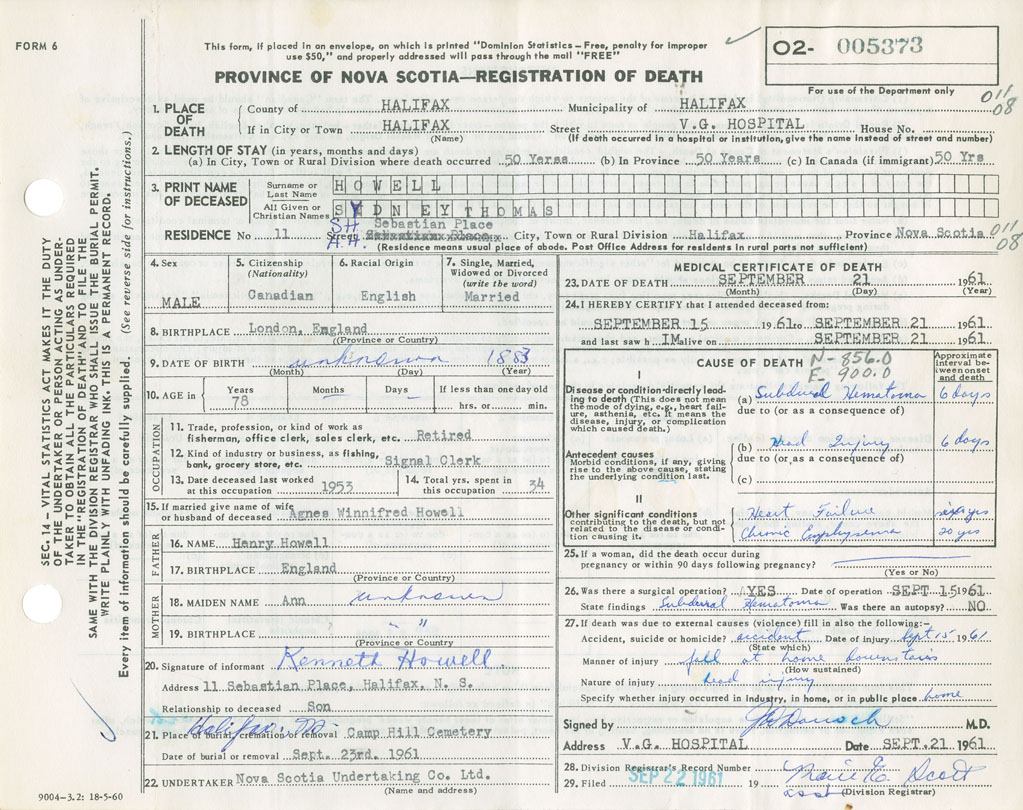 FORM 6
This form, if placed in an envelope, on which is printed "Dominion Statistics – Free, penalty for improper
use $50," and properly addressed will pass through the mail "FREE"
O2- 005373
For use of the Department only
PROVINCE OF NOVA SCOTIA—REGISTRATION OF DEATH
011
08
SEC. 14 – VITAL STATISTICS ACT MAKES IT THE DUTY
OF THE UNDERTAKER OR PERSON ACTING AS UNDER-
TAKER TO OBTAIN ALL THE PARTICULARS REQUIRED
IN THE "REGISTRATION OF DEATH" AND TO FILE THE
SAME WITH THE DIVISION REGISTRAR WHO SHALL ISSUE THE BURIAL PERMIT.
WRITE PLAINLY WITH UNFADING INK. THIS IS A PERMANENT RECORD.
Every item of information should be carefully supplied. (See reverse side for instructions.)
1. PLACE OF DEATH
County of HALIFAX Municipality of HALIFAX
If in City or Town HALIFAX Street V.G. HOSPITAL House No.
(Name) (If death occurred in a hospital or institution, give the name instead of street and number)
2. LENGTH OF STAY (in years, months and days)
(a) In City, Town or Rural Division where death occurred 50 Yerss (b) In Province 50 Years (c) In Canada (if immigrant) 50 Yrs
3. PRINT NAME OF DECEASED
Surname or Last Name HOWELL
All Given or Christian Names SYDNEY THOMAS
S.H. Sebastian Place
RESIDENCE No 11 Street A.H. City, Town or Rural Division Halifax Province Nova Scotia
011
08
(Residence means usual place of abode. Post Office Address for residents in rural parts not sufficient)
4. Sex MALE
5. Citizenship (Nationality) Canadian
6. Racial Origin English
7. Single, Married, Widowed or Divorced (write the word) Married
8. BIRTHPLACE London, England
(Province or Country)
9. DATE OF BIRTH unknown 1883
(Month) (Day) (Year)
10. AGE in Years 78 Months Days If less than one day old
hrs. or min.
OCCUPATION
11. Trade, profession, or kind of work as
fisherman, office clerk, sales clerk, etc. Retired
12. Kind of industry or business, as fishing,
bank, grocery store, etc. Signal Clerk
13. Date deceased last worked at this occupation 1953
14. Total yrs. spent in this occupation 34
15. If married give name of wife
or husband of deceased Agnes Winnifred Howell
FATHER
16. NAME Henry Howell
17. BIRTHPLACE England
(Province or Country)
MOTHER
18. MAIDEN NAME Ann unknown
19. BIRTHPLACE " "
(Province or Country)
20. Signature of informant Kenneth Howell
Address 11 Sebastian Place, Halifax, N. S.
Relationship to deceased Son
Halifax,
21. Place of burial, cremation or removal Camp Hill Cemetery
Date of burial or removal Sept. 23rd. 1961
22. UNDERTAKER Nova Scotia Undertaking Co. Ltd.
(Name and address)
9004-3.2: 18-5-60
MEDICAL CERTIFICATE OF DEATH
23. DATE OF DEATH SEPTEMBER 21 1961
(Month) (Day) (Year)
24. I HEREBY CERTIFY that I attended deceased from:
SEPTEMBER 15 1961 to SEPTEMBER 21 1961
and last saw h IM alive on SEPTEMBER 21 1961
CAUSE OF DEATH N-856.0
E-900.0
Approximate interval between onset and death
I
Disease or condition directly lead-
ing to death (This does not mean
the mode of dying, e.g., heart fail-
ure, asthenia, etc. It means the
disease, injury, or complication
which caused death.)
(a) Subdural Hematoma 6 days
due to (or as a consequence of)
Antecedent causes
Morbid conditions, if any, giving
rise to the above cause, stating
the underlying condition last.
(b) Head Injury 6 days
due to (or as a consequence of)
(c)
II
Other significant conditions
contributing to the death, but not
related to the disease or condi-
tion causing it.
Heart Failure yrs
Chronic Emphysema 20 yrs
25. If a woman, did the death occur during
pregnancy or within 90 days following pregnancy?
(Yes or No)
26. Was there a surgical operation? YES Date of operation SEPT. 15 1961
State findings Subdural Hematoma Was there an autopsy? NO
27. If death was due to external causes (violence) fill in also the following:–
Accident, suicide or homicide? accident Date of injury Sept 15 1961
(State which)
Manner of injury fall at home downstairs
(How sustained)
Nature of injury head injury
Specify whether injury occurred in industry, in home, or in public place home
Signed by M.D.
Address V.G. HOSPITAL Date SEPT. 21 1961
28. Division Registrar's Record Number
29. Filed SEP 22 1961 Scott
asst (Division Registrar)